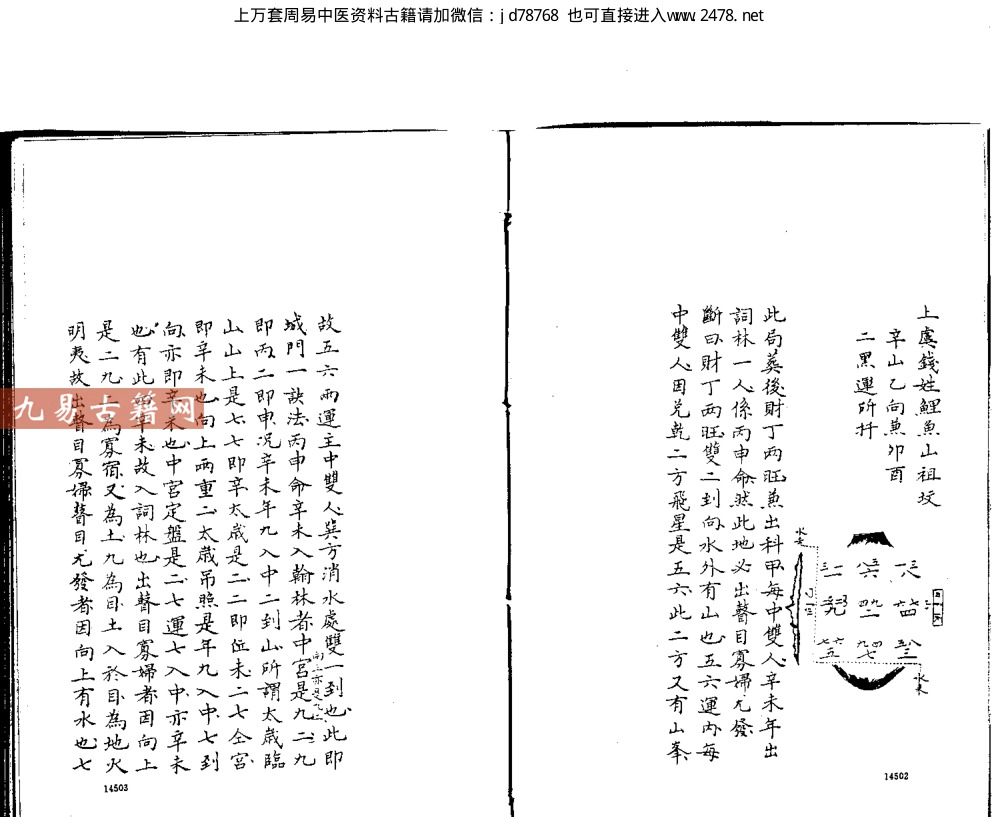 上万套周易中医资料古籍请加微信：jd78768 也可直接进入www.2478.net
上虞錢姓鯉魚山祖坟
辛山乙向兼卯酉
二黑運所扦
水去
水来
此局葬後財丁兩旺兼出科甲每中雙人辛未年出
詞林一人係丙申命然此地必出瞽目寡婦尤發
斷曰財丁兩旺雙二到向水外有山也五六運內每
中雙人因兌乾二方飛星是五六此二方又有山峯
14502
故五六兩運主中雙人巽方消水處雙一到也此即
城門一訣法丙申命辛未入翰林者中宮是九二九
即丙二即申况辛未年九入中二到山所謂太歲臨
山山上是七七即辛太歲是二二即位未二七仝宮
即辛未也向上兩重二太歲吊照是年九入中七到
向亦即辛未也中宮定盤是二七運七入中亦辛未
也有此辛未故入詞林也出瞽目寡婦者因向上
是二九二為寡宿又為土九為目土入於目為地火
明夷故出瞽目寡婦瞽目尤發者因向上有水也七
14503
九易古籍网